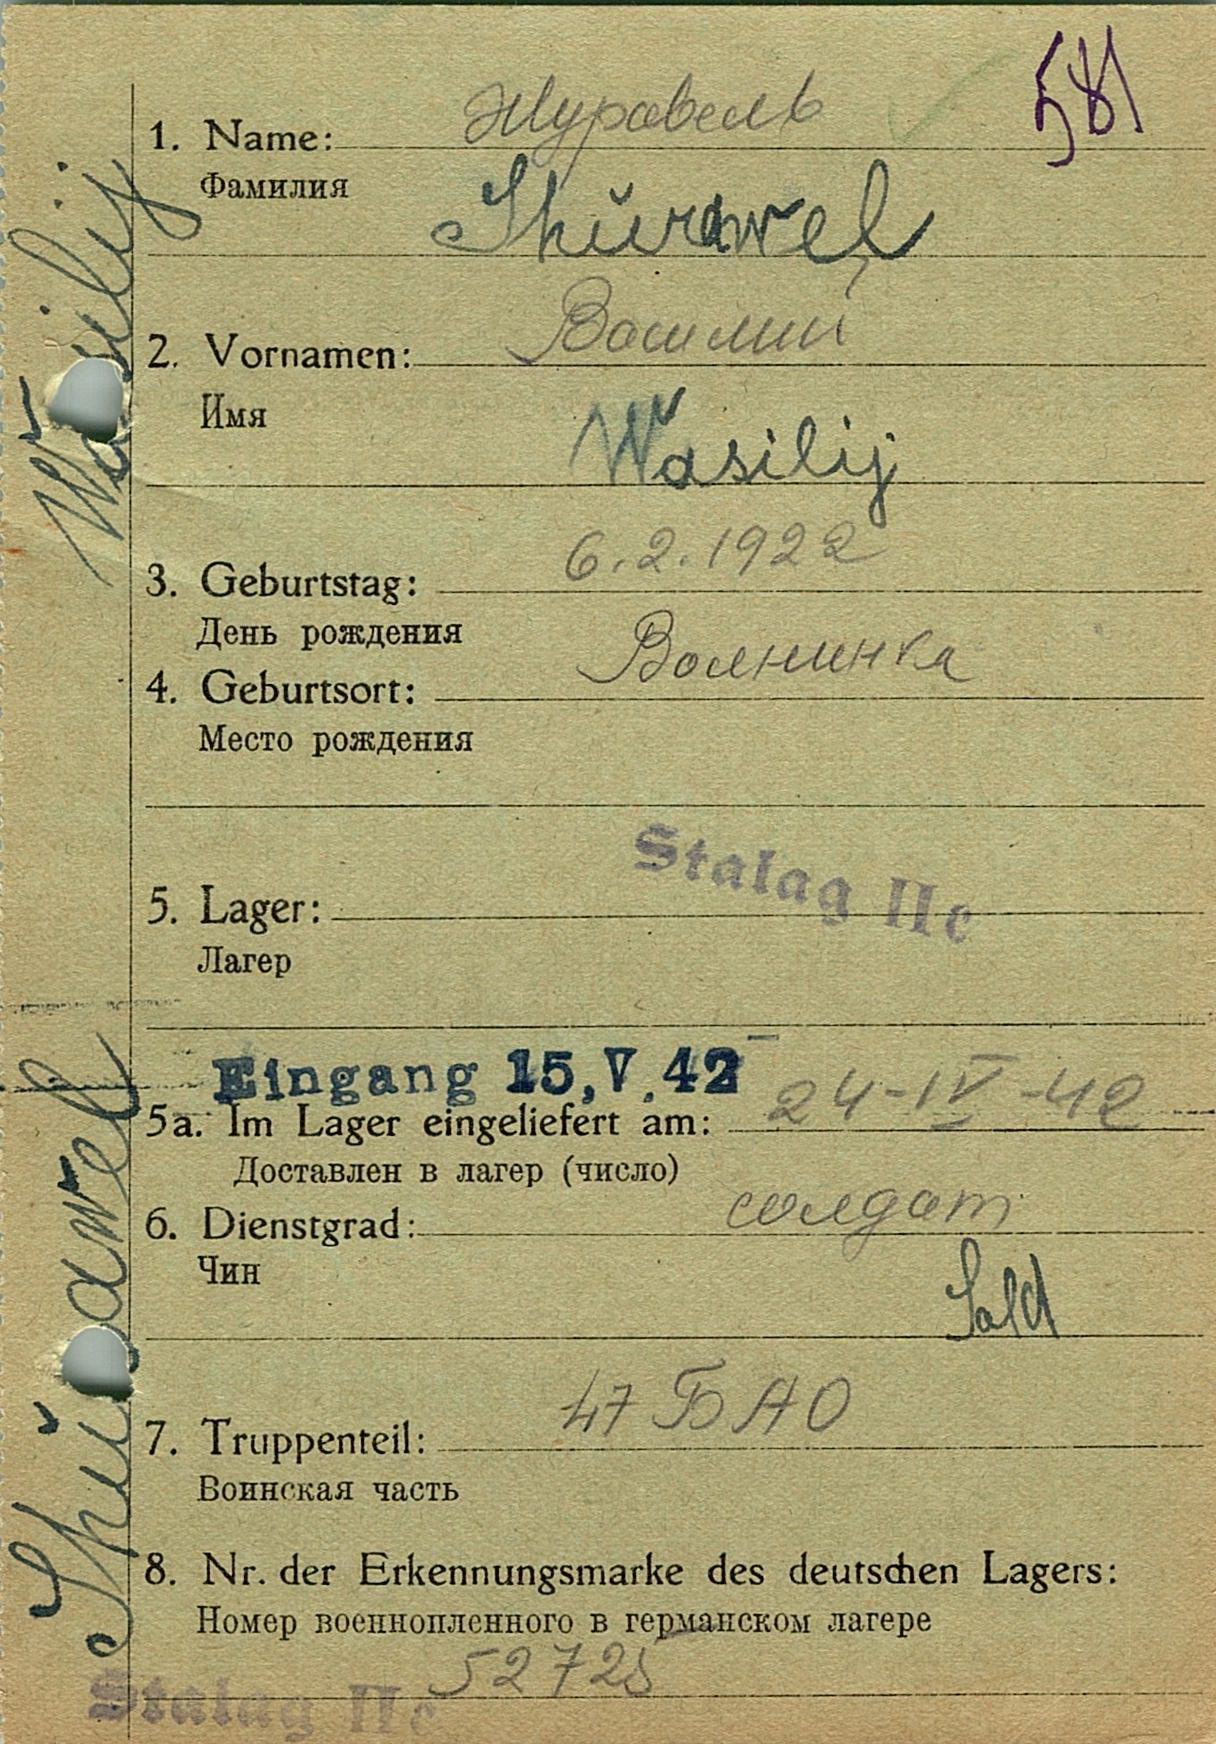 581
1. Name: Журавель
Фамилия
Shŭrawel
2. Vornamen: Василий
Имя
Wasilij
3. Geburtstag: 6.2.1922
День рождения
4. Geburtsort: Волнинка
Место рождения
Stalag IIc
5. Lager:
Лагер
Eingang 15.V.42
5a. Im Lager eingeliefert am: 24-IV-42
Доставлен в лагер (число)
6. Dienstgrad: солдат
Чин
Sold
7. Truppenteil: 47 БАО
Воинская часть
8. Nr. der Erkennungsmarke des deutschen Lagers:
Номер военнопленного в германском лагере
52725
Stalag IIc
Shŭrawel Wasilij